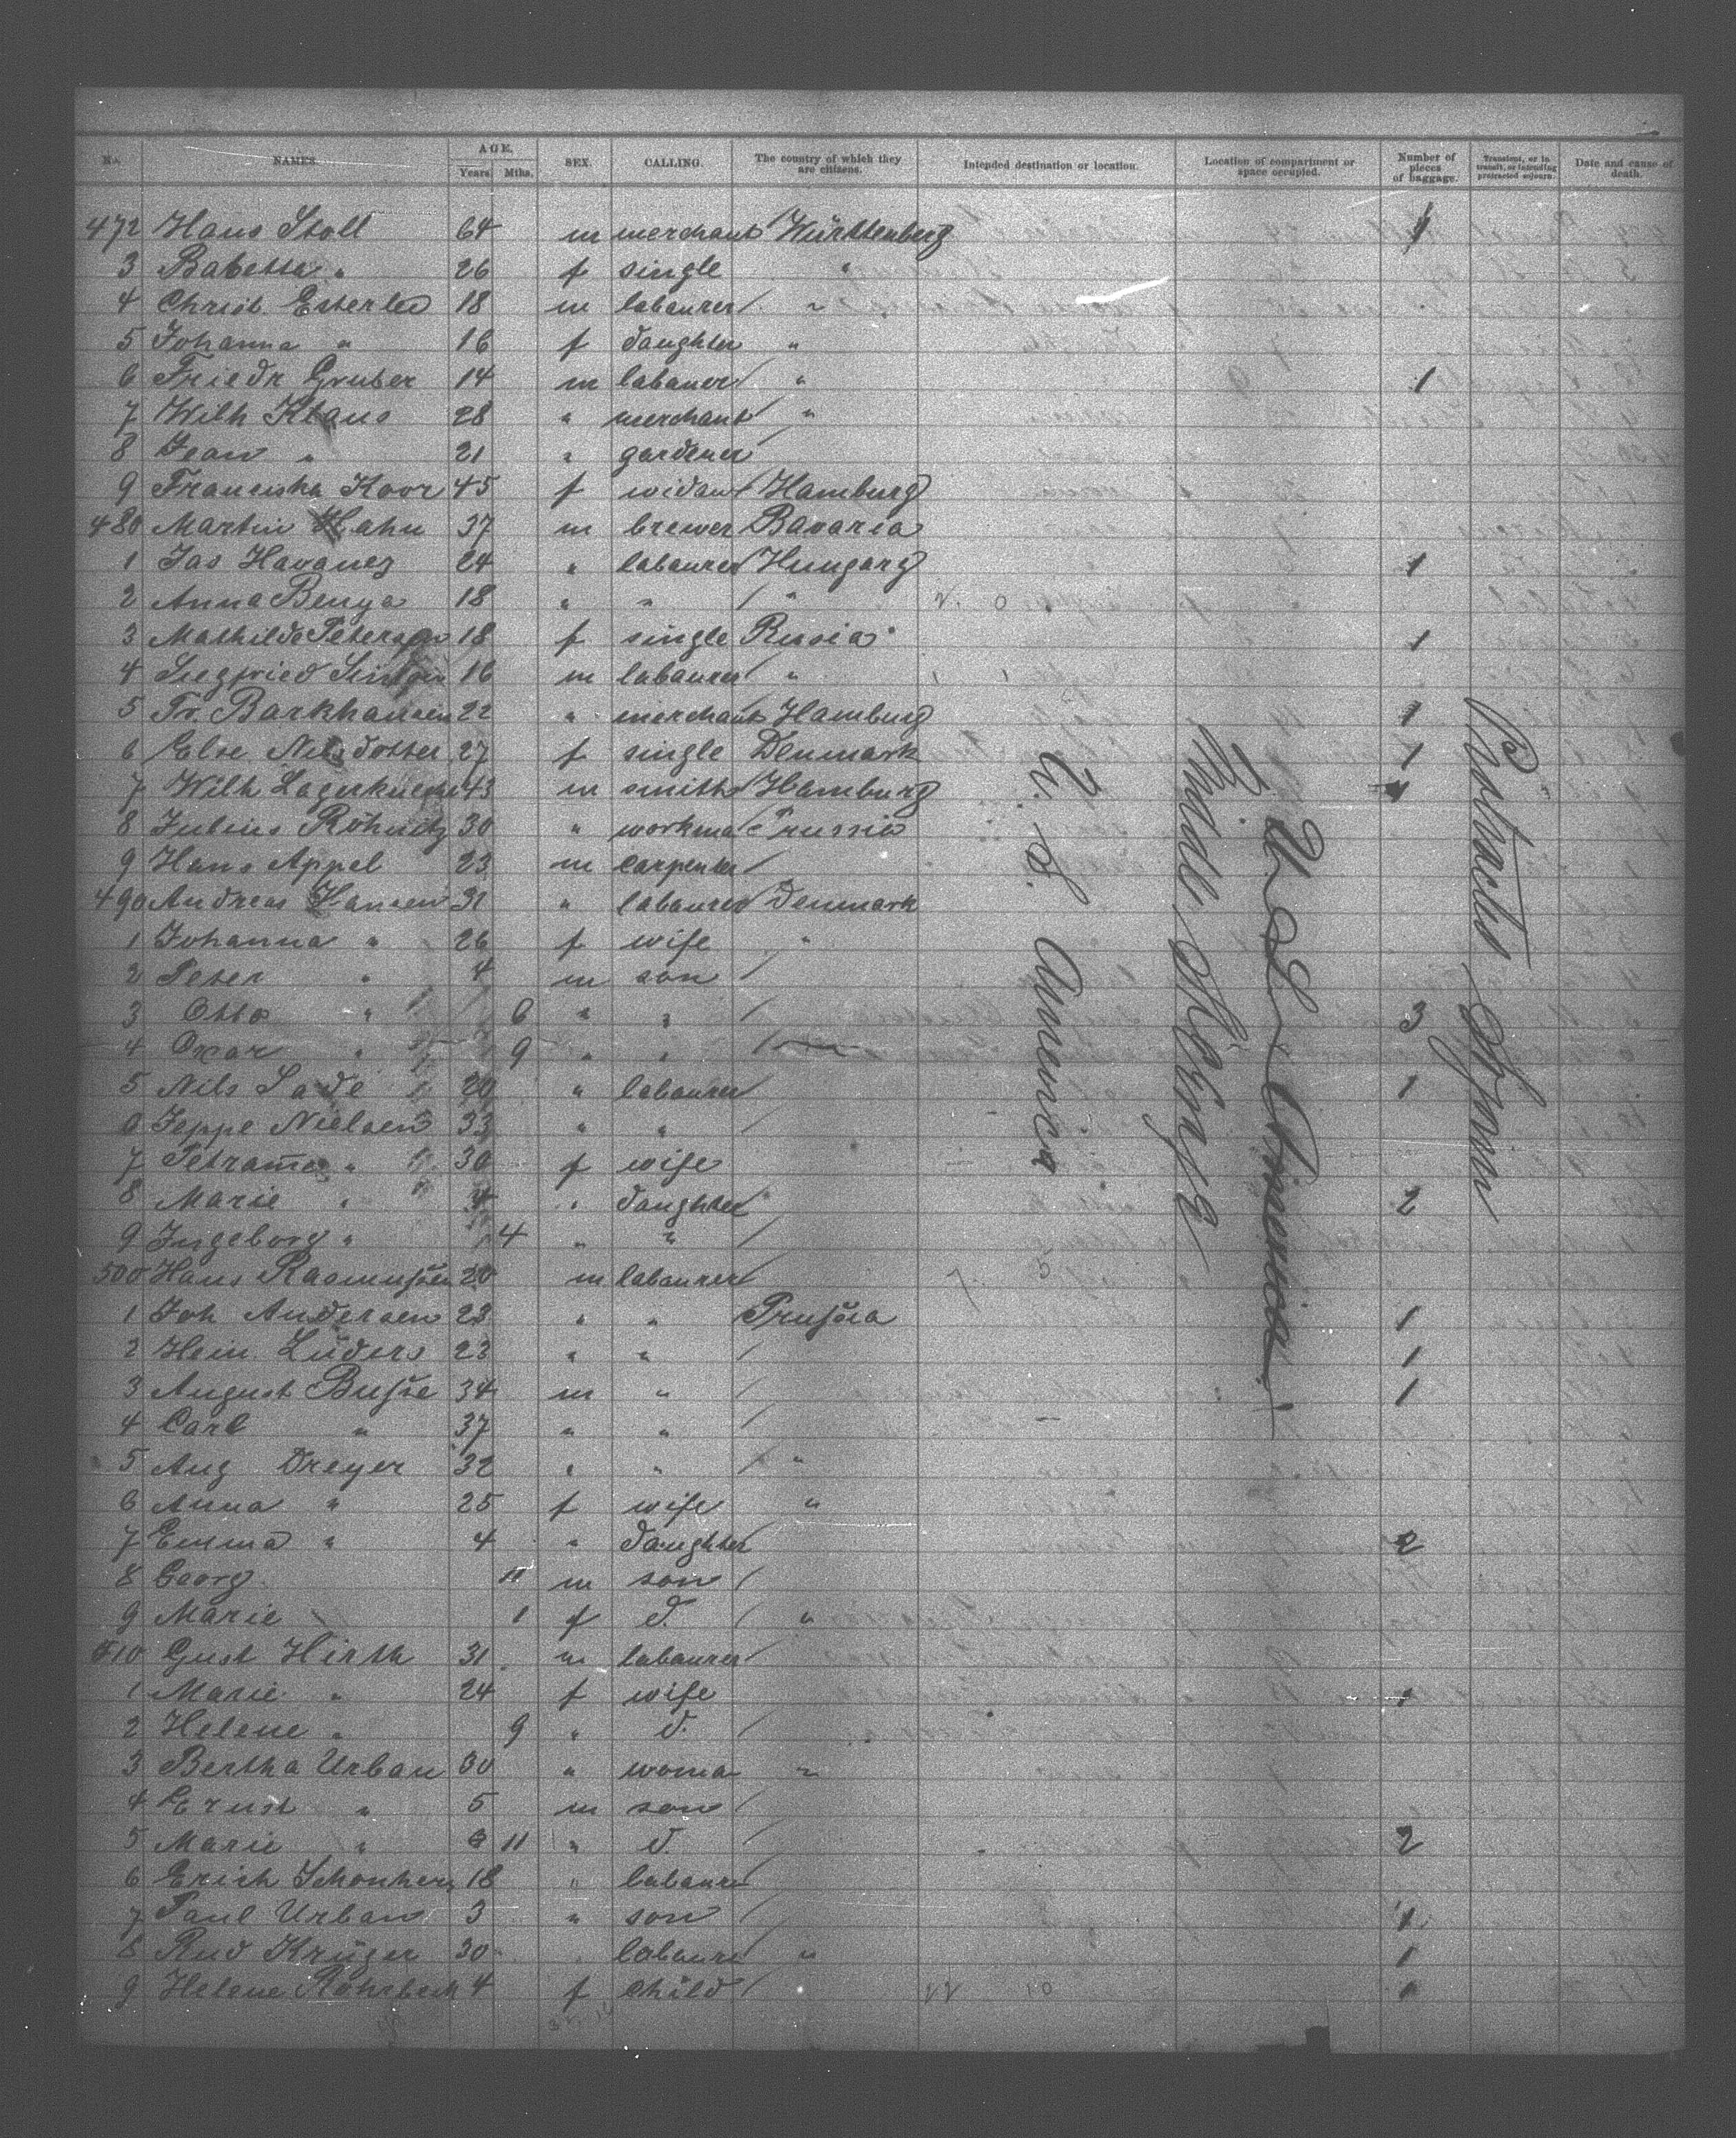 No. NAMES. AGE. Years Mths. SEX. CALLING. The country of which they are citizens. Intended destination or location. Location of compartment or space occupied. Number of pieces of baggage. Transient, or in transit, or intending protracted sojourn. Date and cause of death.
472 Hans Stoll 64 m merchant Württemberg 1
3 Babette " 26 f single "
4 Christ. Esterle 18 m labaurer "
5 Johanna " 16 f daughter "
6 Friedr Gruber 14 m labaurer " 1
7 Wilh Klaus 28 " merchant "
8 Jean " 21 " gardener
9 Franciska Koor 45 f widow Hamburg
480 Martin Hahn 37 m brewer Bavaria
1 Jas Havanez 24 " labaurer Hungary 1
2 Anna Benya 18 " " "
3 Mathilde Peterson 18 f single Russia 1
4 Siegfried 16 m labaurer "
5 Fr. Barkhausen 22 " merchant Hamburg 1
6 Else Nilsdotter 27 f single Denmark 1
7 Wilh 43 m smith Hamburg 1
8 Julius Röhnitz 30 " workma Prussia
9 Hans Appel 23 m carpenter
490 Andreas Hansen 31 " labaurer Denmark
1 Johanna " 26 f wife "
2 Peter " 4 m son
3 Otto " 6 " " 3
4 Oxar " 9 " "
5 Nils Lade 20 " labaurer 1
6 Jeppe Nielsen 33 " "
7 " 30 f wife
8 Marie " 4 " daughter 2
9 Ingeborg " 4 " "
500 Hans Rasmussen 20 m labaurer
1 Joh Andersen 23 " " Prussia 1
2 Hein. Lüders 23 " " 1
3 August Busse 34 m " 1
4 Carl " 37 " "
5 Aug Dreyer 32 " " "
6 Anna " 25 f wife "
7 Emma " 4 " daughter 2
8 Georg 11 m son
9 Marie 1 f d. "
510 Gust Hirth 31 m labaurer
1 Marie " 24 f wife 1
2 Helene " 9 " d.
3 Bertha Urban 30 " woma "
4 Ernst " 5 m son
5 Marie " 11 " d. 2
6 Erich Schonherr 18 " labaurer
7 Paul Urban 3 " son 1
8 Rud Krüger 30 " labaurer " 1
9 Helene Rohrbeck 4 f child 1
U. S. America
Middle Steerage
U. S. America
Protracted Sojourn